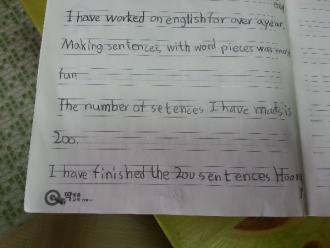 I have worked on english for over a year.
Making sentences, with word pieces was more
fun
The number of setences I have made is
200.
I have finished the 200 sentences Hoo
y